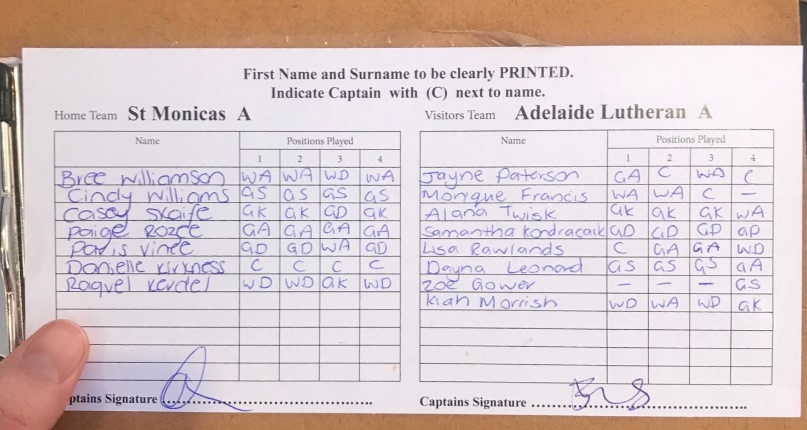 First Name and Surname to be clearly PRINTED.
Indicate Captain with (C) next to name.
Home Team St Monicas A
Visitors Team Adelaide Lutheran A
Name Positions Played
1 2 3 4
Bree Williamson WA WA WD WA
Cindy Williams GS GS GS GS
Casey Skaife GK GK GD GK
Paige Rozee GA GA GA GA
Paris Vince GD GD WA GD
Danielle Kirkness C C C C
Raquel Kerdel WD WD GK WD
ptains Signature
Name Positions Played
1 2 3 4
Jayne Paterson GA C WD C
Monique Francis WA WA C –
Alana Twisk GK GK GK WA
Samantha Kondracaik GD GD GD GD
Lisa Rawlands C GA GA WD
Dayna Leonard GS GS GS GA
Zoe Gower – – – GS
Kiah Morrish WD WA WD GK
Captains Signature